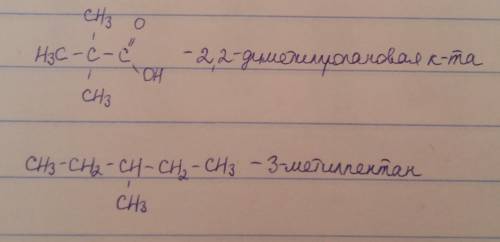 CH3 O
H3C - C - C - 2,2-диметилпропановая к-та
OH
CH3
CH3-CH2-CH-CH2-CH3 - 3-метилпентан
CH3